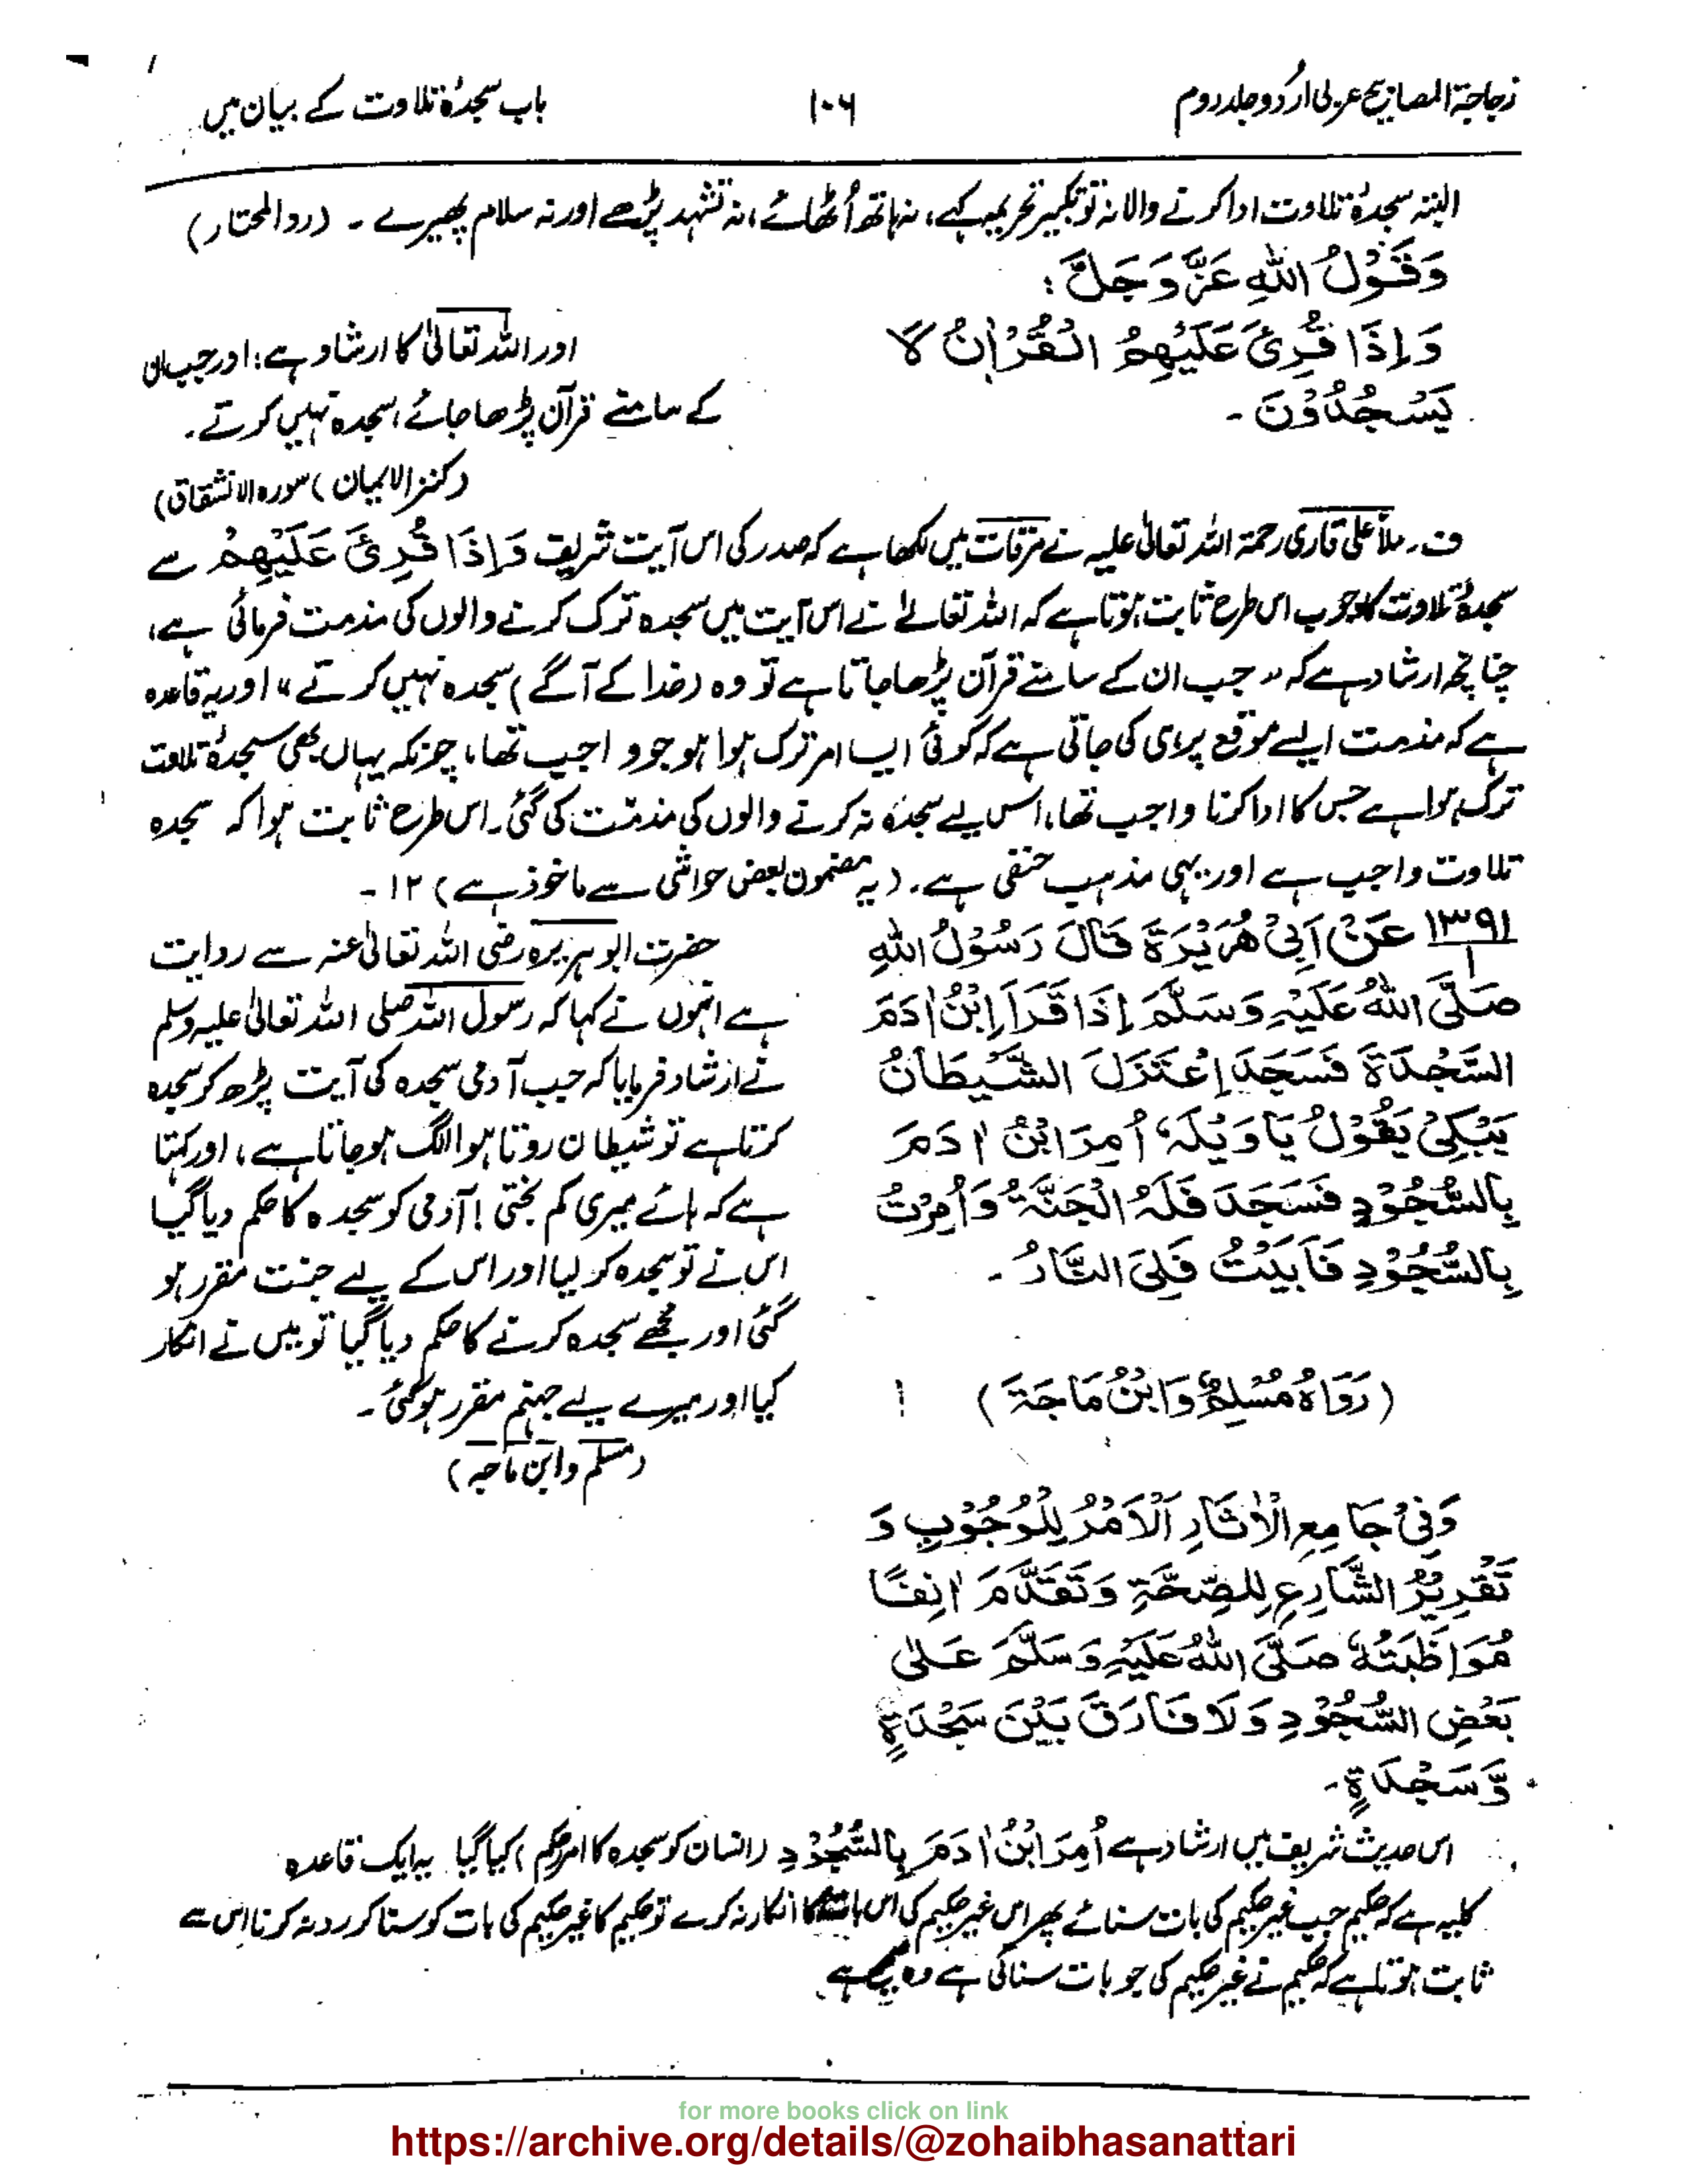 زجاجۃ المصابیح عربی اردو جلد دوم
۱۰۶
باب سجدۂ تلاوت کے بیان میں
البتہ سجدۂ تلاوت ادا کرنے والا نہ تو تکبیر تحریمہ کہے، نہ ہاتھ اُٹھائے، نہ تشہد پڑھے اور نہ سلام پھیرے ۔ (ردالمحتار)
وَقَوْلُ اللهِ عَزَّ وَجَلَّ :
وَاِذَا قُرِئَ عَلَيْهِمُ الْقُرْاٰنُ لَا
يَسْجُدُوْنَ ۔
اور اللہ تعالیٰ کا ارشاد ہے : اور جب ان
کے سامنے قرآن پڑھا جائے، سجدہ نہیں کرتے۔
(کنز الایمان) سورہ الانشقاق)
ف ۔ ملّا علی قاری رحمۃ اللہ تعالیٰ علیہ نے مرقات میں لکھا ہے کہ صدر کی اس آیت شریف وَاِذَا قُرِئَ عَلَيْهِمْ سے
سجدۂ تلاوت کا وجوب اس طرح ثابت ہوتا ہے کہ اللہ تعالےٰ نے اس آیت میں سجدہ ترک کرنے والوں کی مذمت فرمائی ہے،
چنانچہ ارشاد ہے کہ " جب ان کے سامنے قرآن پڑھا جاتا ہے تو وہ (خدا کے آگے) سجدہ نہیں کرتے " اور یہ قاعدہ
ہے کہ مذمت ایسے موقع پر ہی کی جاتی ہے کہ کوئی ایسا امر ترک ہوا ہو جو واجب تھا، چونکہ یہاں بھی سجدۂ تلاوت
ترک ہوا ہے جس کا ادا کرنا واجب تھا، اس لیے سجدہ نہ کرنے والوں کی مذمّت کی گئی۔ اس طرح ثابت ہوا کہ سجدہ
تلاوت واجب ہے اور یہی مذہب حنفی ہے۔ (یہ مضمون بعض حواشی سے ماخوذ ہے) ۱۲ ۔
۱۳۹۱
۱
عَنْ اَبِيْ هُرَيْرَةَ قَالَ رَسُوْلُ اللهِ
صَلَّى اللهُ عَلَيْهِ وَسَلَّمَ اِذَا قَرَاَ ابْنُ اٰدَمَ
السَّجْدَةَ فَسَجَدَ اِعْتَزَلَ الشَّيْطَانُ
يَبْكِيْ يَقُوْلُ يَا وَيْلَهٗ اُمِرَ ابْنُ اٰدَمَ
بِالسُّجُوْدِ فَسَجَدَ فَلَهُ الْجَنَّةُ وَاُمِرْتُ
بِالسُّجُوْدِ فَاَبَيْتُ فَلِيَ النَّارُ ۔
(رَوَاهُ مُسْلِمٌ وَابْنُ مَاجَةَ)
حضرت ابوہریرہ رضی اللہ تعالیٰ عنہ سے روایت
ہے انہوں نے کہا کہ رسول اللہ صلی اللہ تعالیٰ علیہ وسلم
نے ارشاد فرمایا کہ جب آدمی سجدہ کی آیت پڑھ کر سجدہ
کرتا ہے تو شیطان روتا ہوا الگ ہو جاتا ہے، اور کہتا
ہے کہ ہائے میری کم بختی! آدمی کو سجدہ کا حکم دیا گیا
اس نے تو سجدہ کر لیا اور اس کے لیے جنت مقرر ہو
گئی اور مجھے سجدہ کرنے کا حکم دیا گیا تو میں نے انکار
کیا اور میرے لیے جہنم مقرر ہو گئی۔
(مسلم وابن ماجہ)
وَفِيْ جَامِعِ الْاٰثَارِ اَلْاَمْرُ لِلْوُجُوْبِ وَ
تَقْرِيْرُ الشَّارِعِ لِلصِّحَّةِ وَتَقَدَّمَ اٰنِفًا
مُوَاظَبَتُهٗ صَلَّى اللهُ عَلَيْهِ وَسَلَّمَ عَلٰى
بَعْضِ السُّجُوْدِ وَلَا فَارَقَ بَيْنَ سَجْدَةٍ
وَّسَجْدَةٍ ۔
اس حدیث شریف میں ارشاد ہے اُمِرَ ابْنُ اٰدَمَ بِالسُّجُوْدِ (انسان کو سجدہ کا امر حکم) کیا گیا یہ ایک قاعدہ
کلیہ ہے کہ حکیم جب غیر حکیم کی بات سنائے پھر اس غیر حکیم کی اس بات کا انکار نہ کرے تو حکیم کا غیر حکیم کی بات کو سنا کر رد نہ کرنا اس سے
ثابت ہوتا ہے کہ حکیم نے غیر حکیم کی جو بات سنائی ہے وہ ہے۔
for more books click on link
https://archive.org/details/@zohaibhasanattari